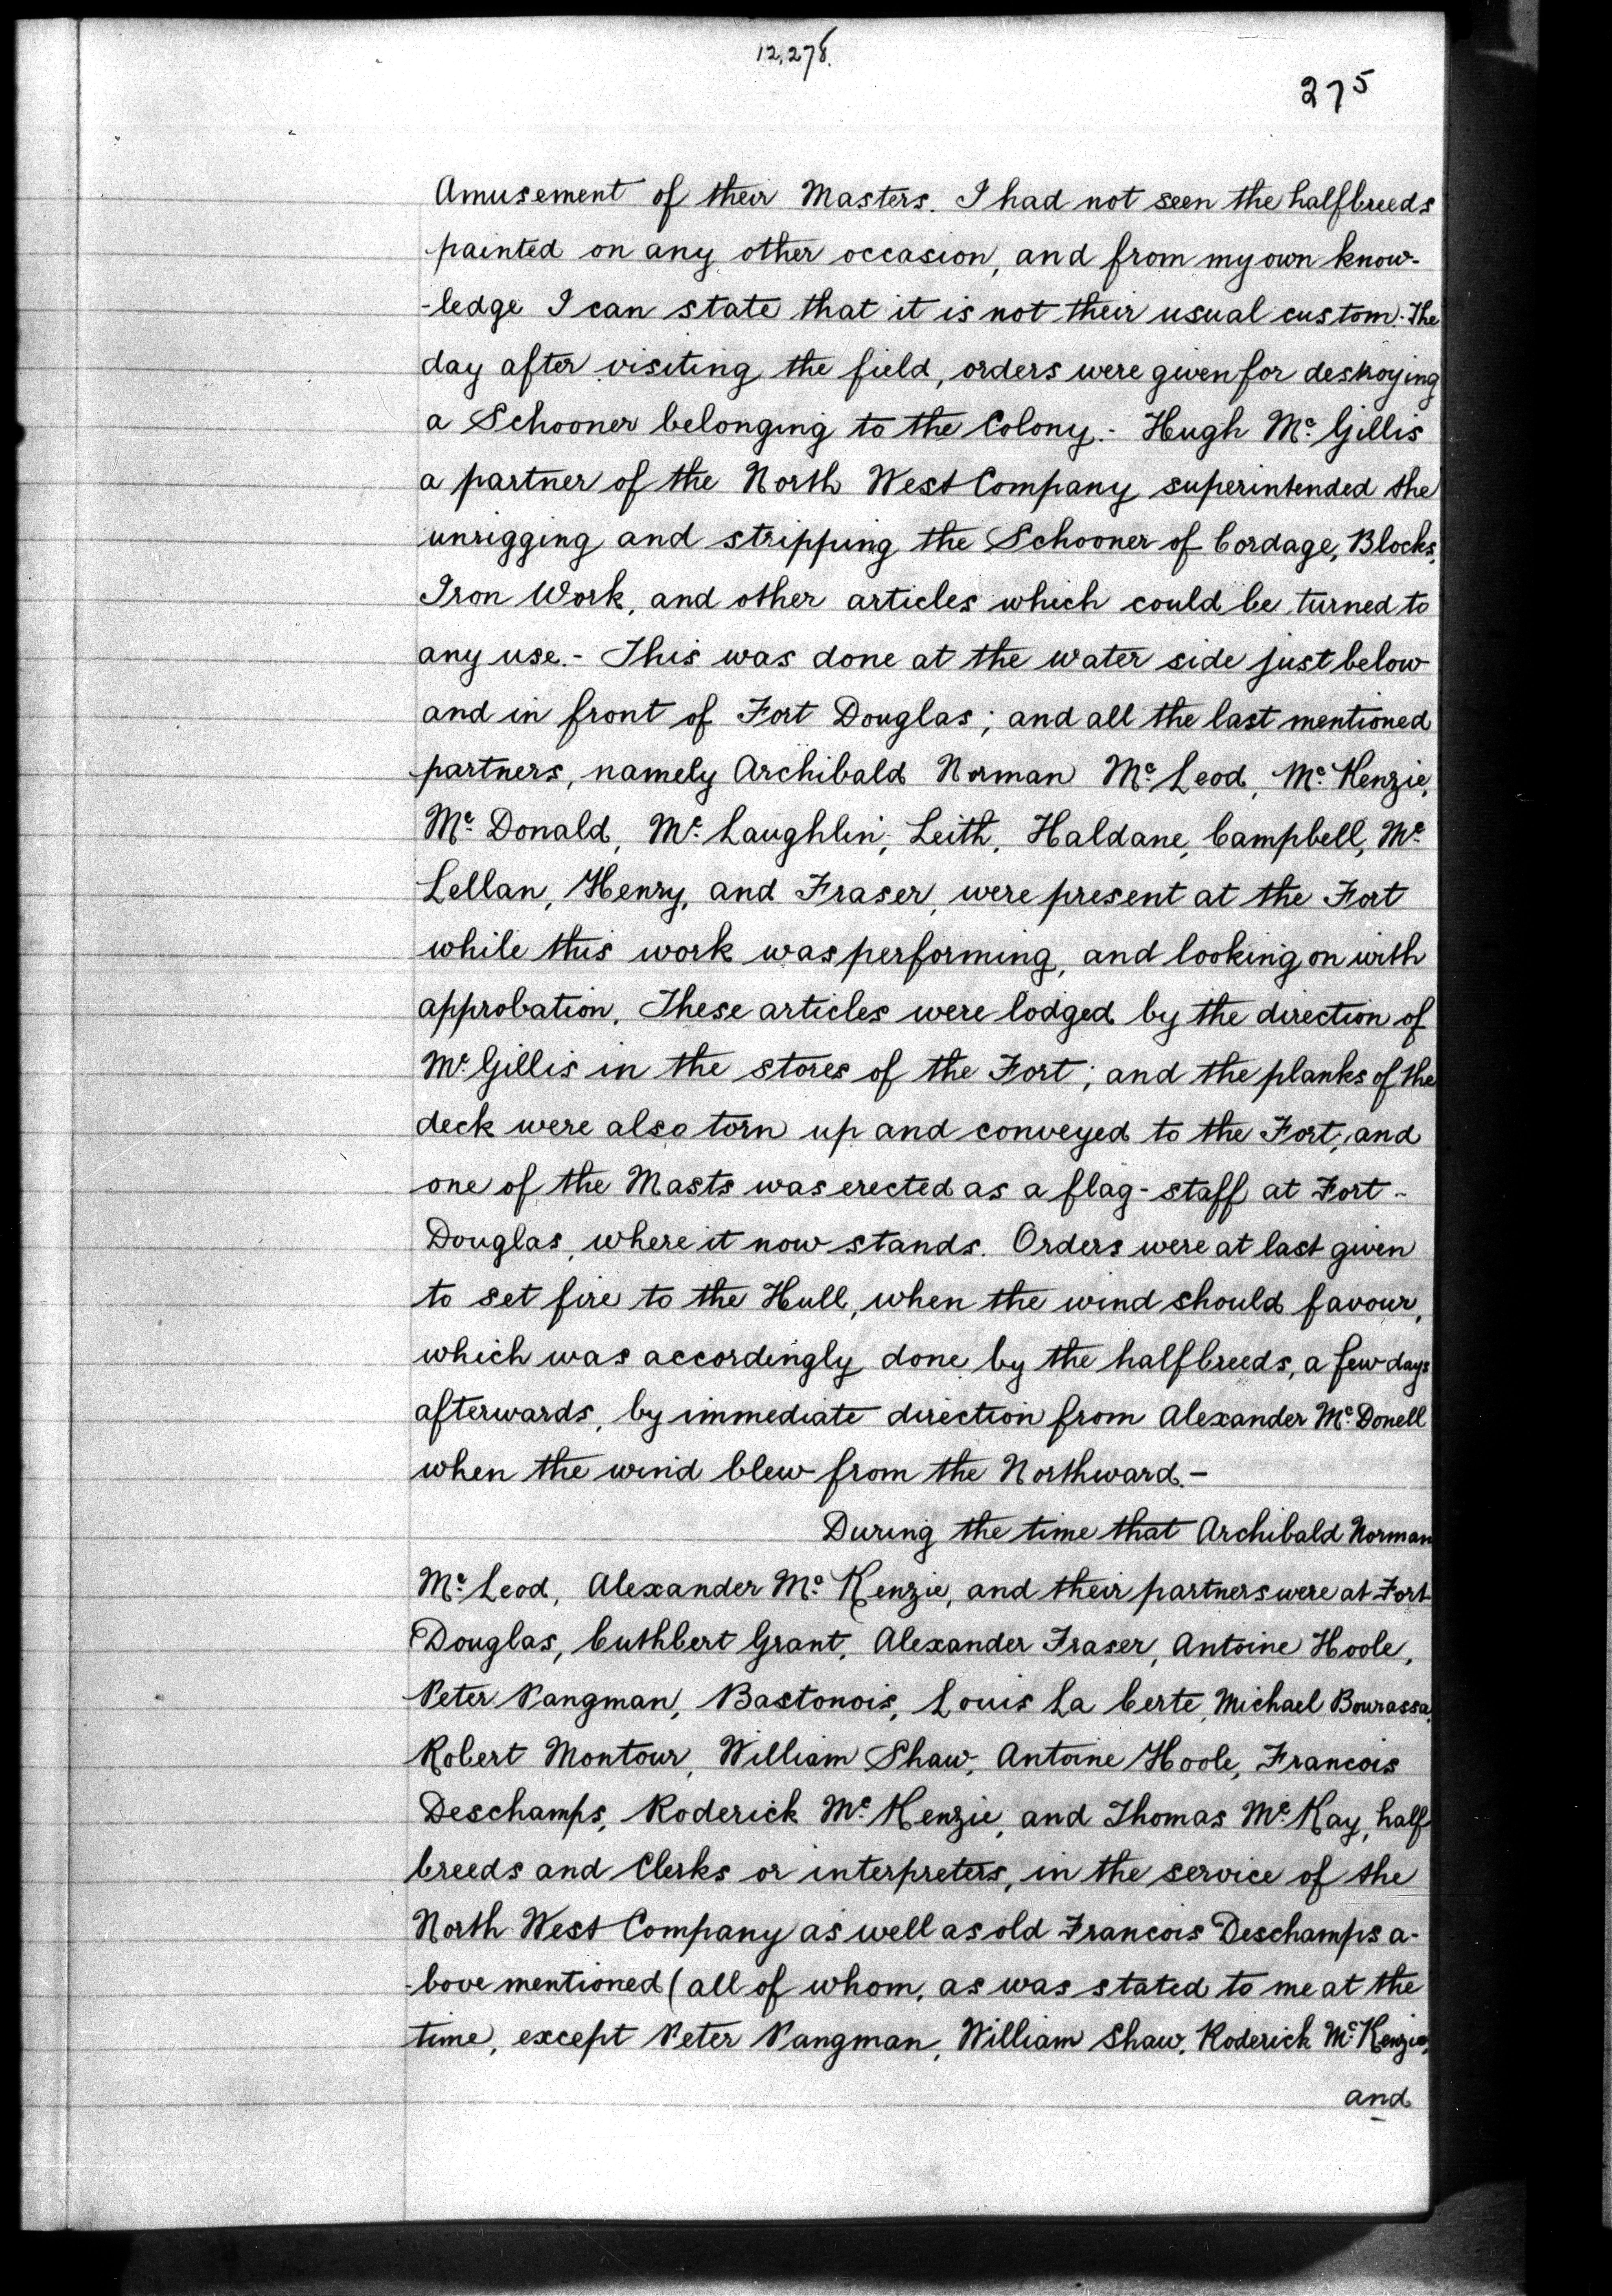 12,278.
275
Amusement of their Masters. I had not seen the halfbreeds
painted on any other occasion, and from my own know-
-ledge I can state that it is not their usual custom. The
day after visiting the field, orders were given for destroying
a Schooner belonging to the Colony.- Hugh Mc. Gillis
a partner of the North West Company superintended the
unrigging and stripping the Schooner of Cordage, Blocks,
Iron Work, and other articles which could be turned to
any use.- This was done at the water side just below
and in front of Fort Douglas; and all the last mentioned
partners, namely Archibald Norman Mc. Leod, Mc. Kenzie,
Mc. Donald, Mc. Laughlin, Leith, Haldane, Campbell, Mc.
Lellan, Henry, and Fraser, were present at the Fort
while this work was performing, and looking on with
approbation. These articles were lodged by the direction of
Mc. Gillis in the stores of the Fort; and the planks of the
deck were also torn up and conveyed to the Fort, and
one of the Masts was erected as a flag-staff at Fort-
Douglas, where it now stands. Orders were at last given
to set fire to the Hull, when the wind should favour,
which was accordingly done by the halfbreeds, a few days
afterwards, by immediate direction from Alexander Mc. Donell
when the wind blew from the Northward.-
During the time that Archibald Norman
Mc. Leod, Alexander Mc. Kenzie, and their partners were at Fort
Douglas, Cuthbert Grant, Alexander Fraser, Antoine Hoole,
Peter Pangman, Bastonois, Louis La Certe, Michael Bourassa,
Robert Montour, William Shaw, Antoine Hoole, Francois
Deschamps, Roderick Mc. Kenzie, and Thomas Mc. Kay, half
breeds and Clerks or interpreters, in the service of the
North West Company as well as old Francois Deschamps a-
-bove mentioned (all of whom, as was stated to me at the
time, except Peter Pangman, William Shaw, Roderick Mc. Kenzie,
and